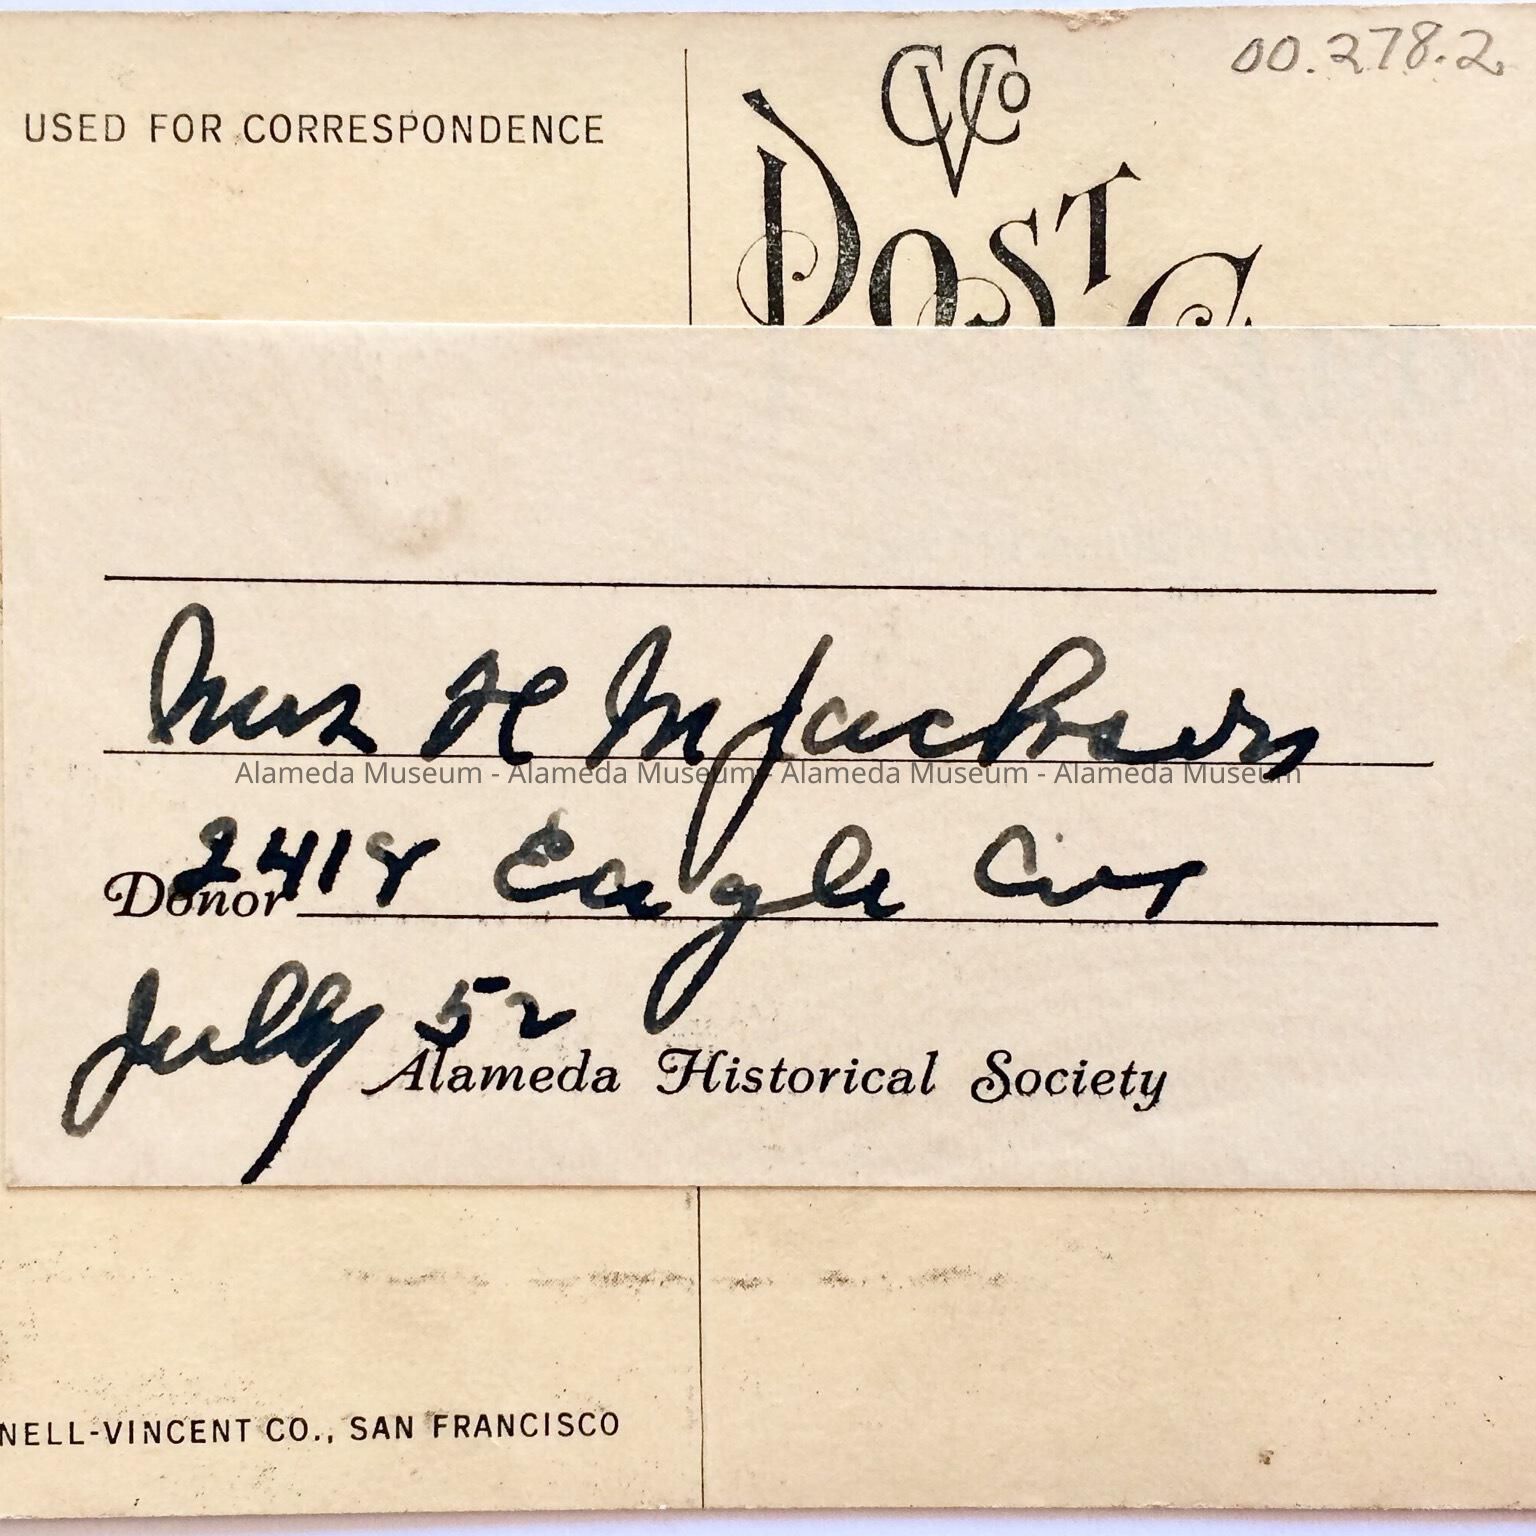 00.278.2
CVCo
USED FOR CORRESPONDENCE
POST C
Mrs H M Jackson
Alameda Museum - Alameda Museum - Alameda Museum - Alameda Museum
2418 Eagle Ave
Donor
July 52
Alameda Historical Society
NELL-VINCENT CO., SAN FRANCISCO